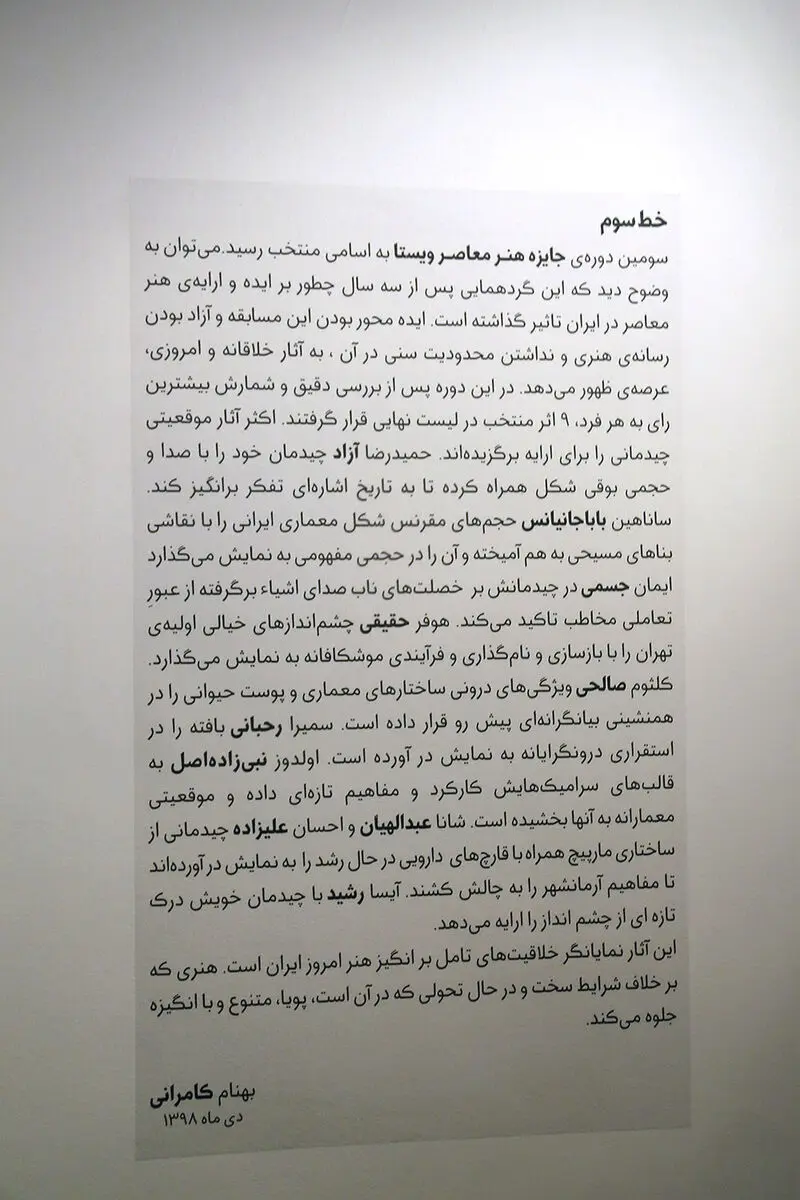 خط سوم
سومین دوره‌ی جایزه هنر معاصر ویستا به اسامی منتخب رسید.می‌توان به
وضوح دید که این گردهمایی پس از سه سال چطور بر ایده و ارایه‌ی هنر
معاصر در ایران تاثیر گذاشته است. ایده محور بودن این مسابقه و آزاد بودن
رسانه‌ی هنری و نداشتن محدودیت سنی در آن ، به آثار خلاقانه و امروزی،
عرصه‌ی ظهور می‌دهد. در این دوره پس از بررسی دقیق و شمارش بیشترین
رای به هر فرد، ۹ اثر منتخب در لیست نهایی قرار گرفتند. اکثر آثار موقعیتی
چیدمانی را برای ارایه برگزیده‌اند. حمیدرضا آزاد چیدمان خود را با صدا و
حجمی بوقی شکل همراه کرده تا به تاریخ اشاره‌ای تفکر برانگیز کند.
ساناهین باباجانیانس حجم‌های مقرنس شکل معماری ایرانی را با نقاشی
بناهای مسیحی به هم آمیخته و آن را در حجمی مفهومی به نمایش می‌گذارد
ایمان جسمی در چیدمانش بر خصلت‌های ناب صدای اشیاء برگرفته از عبورِ
تعاملی مخاطب تاکید می‌کند. هوفر حقیقی چشم‌اندازهای خیالی اولیه‌ی
تهران را با بازسازی و نام‌گذاری و فرآیندی موشکافانه به نمایش می‌گذارد.
کلثوم صالحی ویژگی‌های درونی ساختارهای معماری و پوست حیوانی را در
همنشینی بیانگرانه‌ای پیش رو قرار داده است. سمیرا رحبانی بافته را در
استقراری درونگرایانه به نمایش در آورده است. اولدوز نبی‌زاده‌اصل به
قالب‌های سرامیک‌هایش کارکرد و مفاهیم تازه‌ای داده و موقعیتی
معمارانه به آنها بخشیده است. شانا عبدالهیان و احسان علیزاده چیدمانی از
ساختاری مارپیچ همراه با قارچ‌های دارویی در حال رشد را به نمایش در آورده‌اند
تا مفاهیم آرمانشهر را به چالش کشند. آیسا رشید با چیدمان خویش درک
تازه ای از چشم انداز را ارایه می‌دهد.
این آثار نمایانگر خلاقیت‌های تامل بر انگیز هنر امروز ایران است. هنری که
بر خلاف شرایط سخت و در حال تحولی که در آن است، پویا، متنوع و با انگیزه
جلوه می‌کند.
بهنام کامرانی
دی ماه ۱۳۹۸